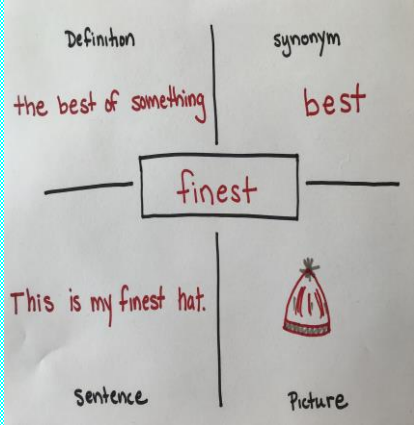 Definition
synonym
the best of something
best
finest
This is my finest hat.
Sentence
Picture